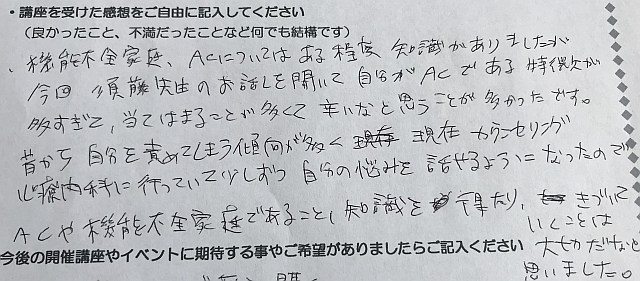 ・講座を受けた感想をご自由に記入してください
（良かったこと、不満だったことなど何でも結構です）
、機能不全家庭、ACについてはある程度 知識がありましたが
今回 須藤先生のお話しを聞いて 自分がACである 特徴が
多すぎて、当てはまることが多くて 辛いなと思うことが多かったです。
昔から 自分を責めてしまう傾向が多く 現在 カウンセリング
心療内科に行っていて少しずつ 自分の悩みを 話せるようになったので
ACや機能不全家庭であること、知識を 得たり、 きづいて
いくことは
大切だなと
思いました。
今後の開催講座やイベントに期待する事やご希望がありましたらご記入ください